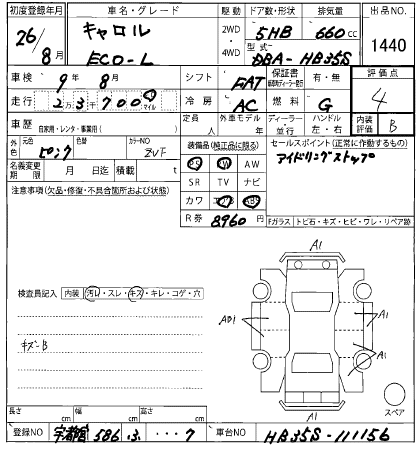 初度登録年月 車名・グレード 駆動 ドア数・形状 排気量 出品NO.
26/8月 キャロル ECO-L 2WD・4WD 5HB 660cc 1440
型式 DBA-HB35S
車検 9年 8月 シフト FAT 保証書 有・無 評価点 4
走行 2万3千700 km マイル 冷房 AC 燃料 G
車歴 自家用・レンタ・事業用( ) 定員 人 外車モデル 年 ディーラー・並行 ハンドル 左・右 内装評価 B
外色 元色 ピンク 色替 カラーNO ZVF 装備品(純正品に限る) セールスポイント(正常に作動するもの)
PS PW AW アイドリングストップ
名義変更期限 月 日迄 積載 t SR TV ナビ
注意事項(欠品・修復・不具合箇所および状態) カワ ABS
R券 8960円
Fガラス トビ石・キズ・ヒビ・ワレ・リペア跡
A1
検査員記入 内装 汚レ・スレ・キズ・キレ・コゲ・穴
AB1 A1
キズ-B
A1
スペア
A1
長さ cm 幅 cm 高さ cm
登録NO 宇都宮 586 ・・・7 車台NO HB35S-111156